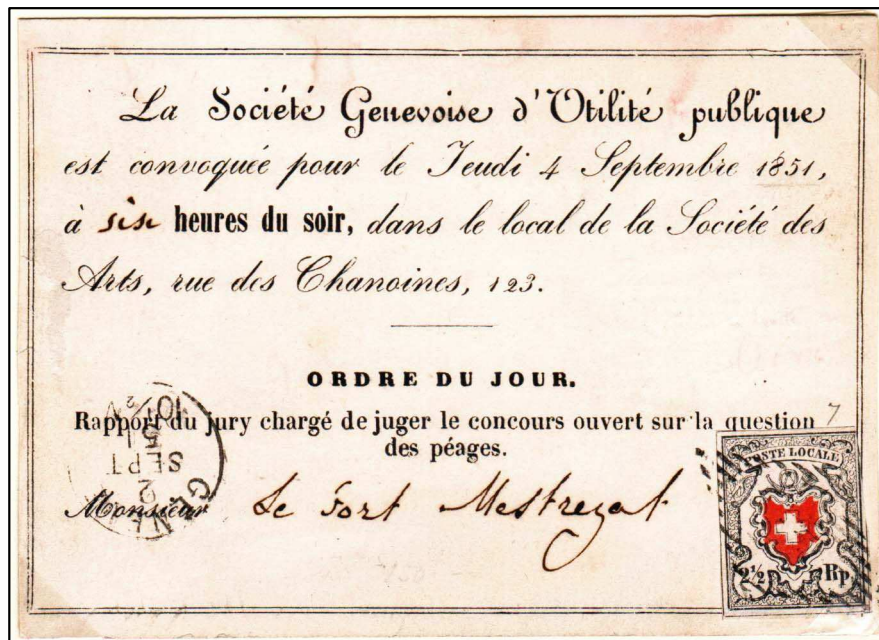 La Société Genevoise d'Utilité publique
est convoquée pour le Jeudi 4 Septembre 1851,
à six heures du soir, dans le local de la Société des
Arts, rue des Chanoines, 123.
ORDRE DU JOUR.
Rapport du jury chargé de juger le concours ouvert sur la question
des péages.
7
Monsieur Le Fort Mestrezat
GENÈVE
2
SEPT
51
10½
POSTE LOCALE
2½ Rp